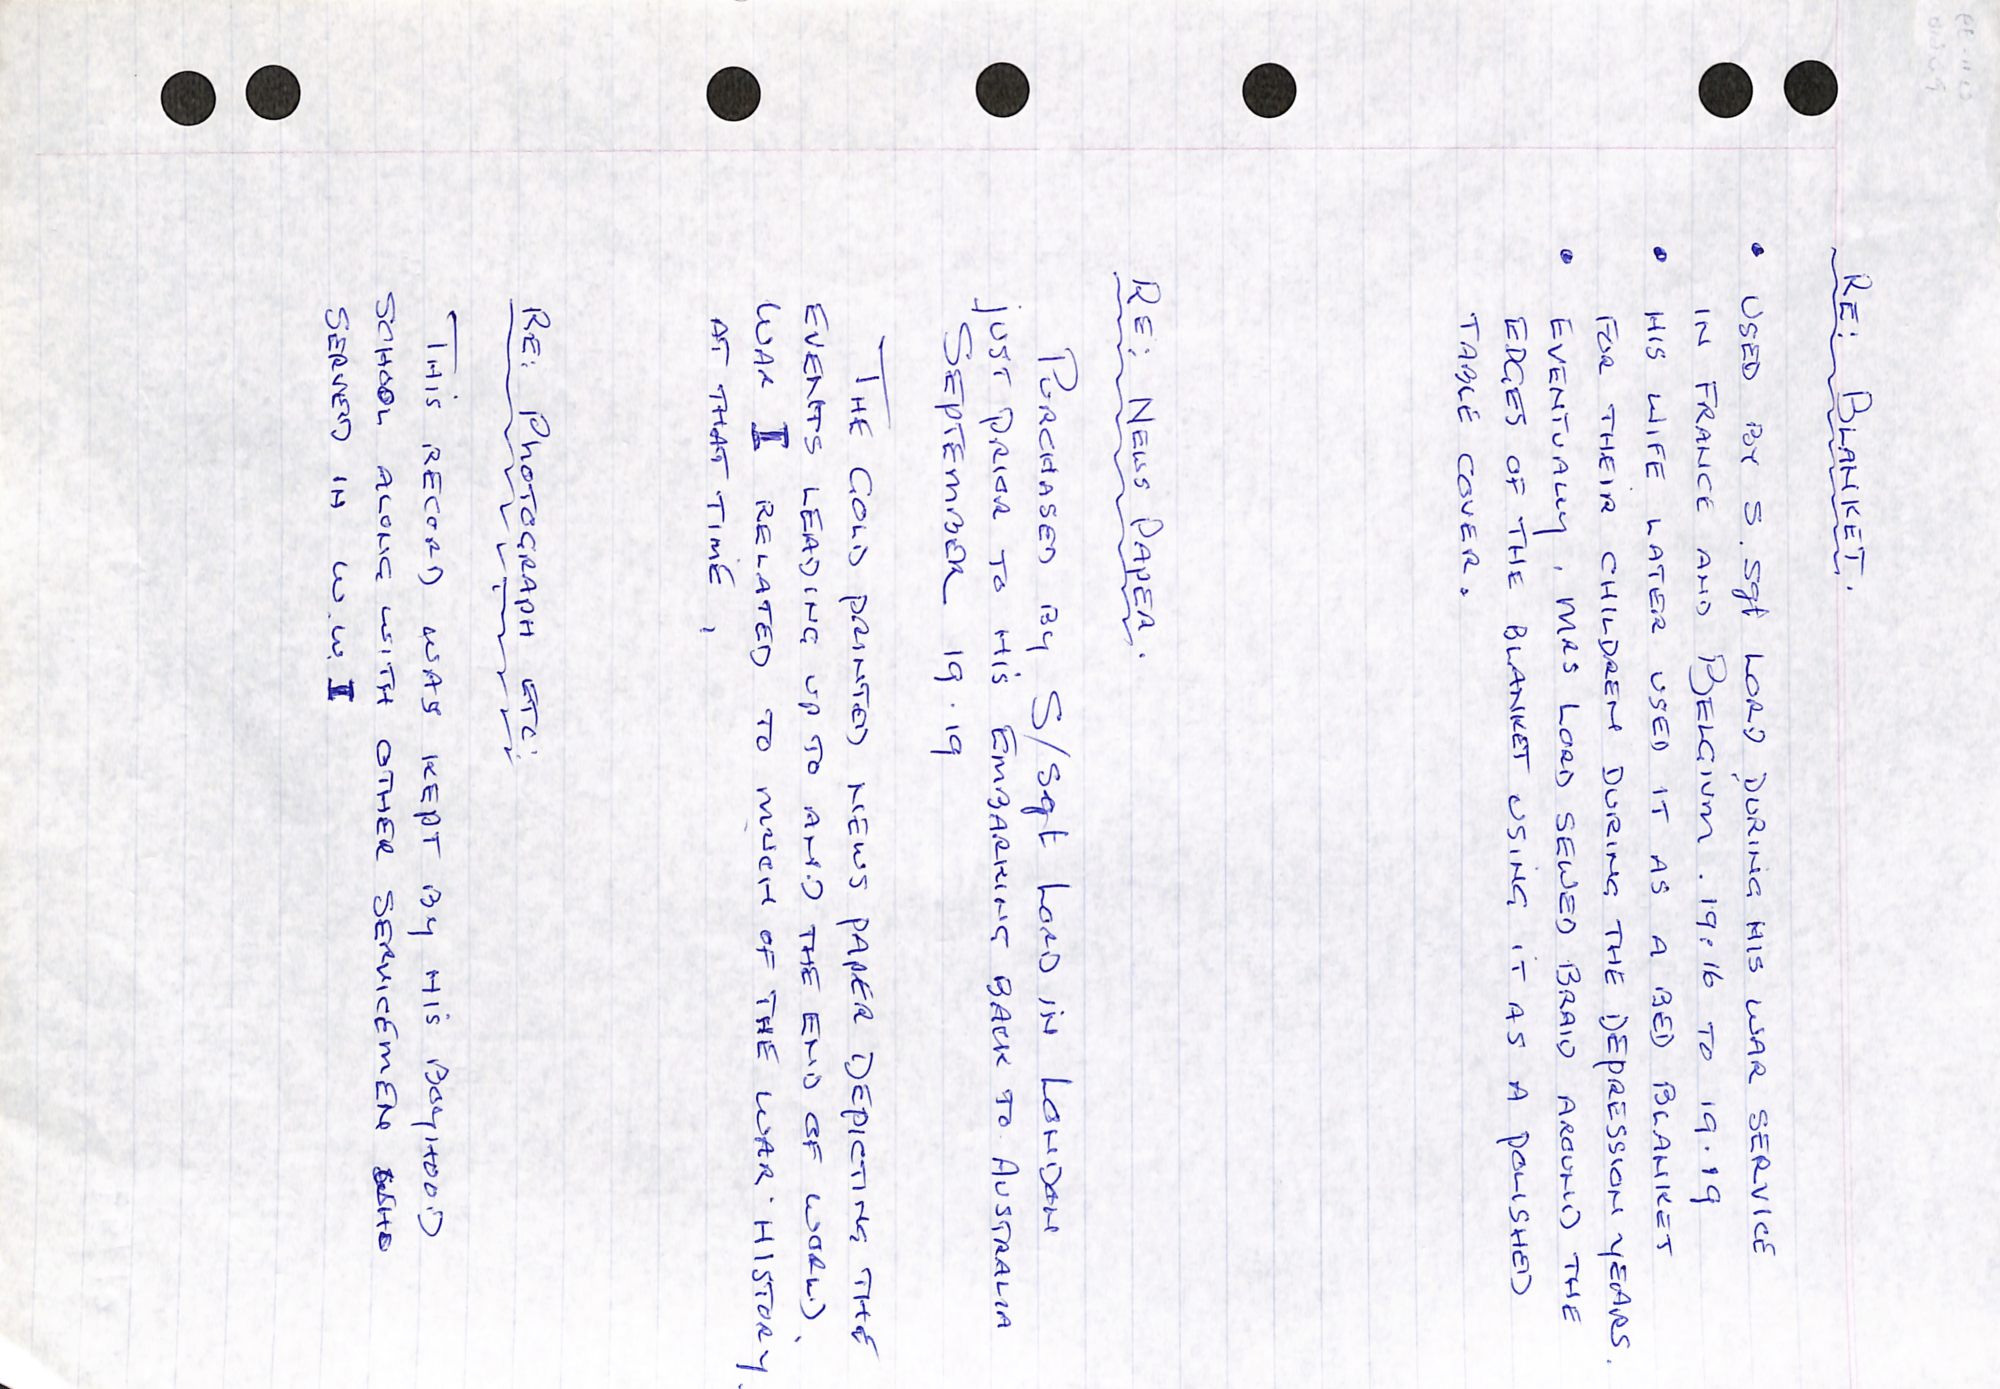 RE: BLANKET.
• USED BY S.Sgt LORD DURING HIS WAR SERVICE
IN FRANCE AND BELGIUM. 19.16 TO 19.19
• HIS WIFE LATER USED IT AS A BED BLANKET
FOR THEIR CHILDREN DURING THE DEPRESSION YEARS.
• EVENTUALLY, MRS LORD SEWED BRAID AROUND THE
EDGES OF THE BLANKET USING IT AS A POLISHED
TABLE COVER.
RE: NEWS PAPER.
PURCHASED BY S/Sgt LORD IN LONDON
JUST PRIOR TO HIS EMBARKING BACK TO AUSTRALIA
SEPTEMBER 19.19
THE GOLD PRINTED NEWS PAPER DEPICTING THE
EVENTS LEADING UP TO AND THE END OF WORLD.
WAR I RELATED TO MUCH OF THE WAR HISTORY.
AT THAT TIME.
RE: PHOTOGRAPH ETC:
THIS RECORD WAS KEPT BY HIS BOYHOOD
SCHOOL ALONG WITH OTHER SERVICEMEN WHO
SERVED IN W.W.I